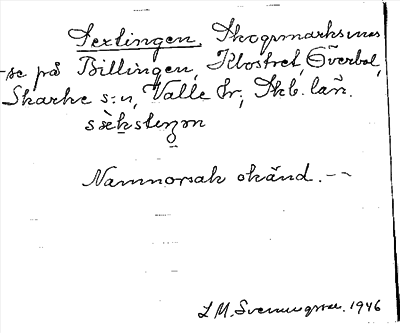 Sextingen, Skogsmarksnas
-se på Billingen, Klostret, Överbol,
Skarke s:n, Valle hr; Skb. län.
sὲksteŋən
Namnorsak okänd. --
L M. Svenungsson. 1946